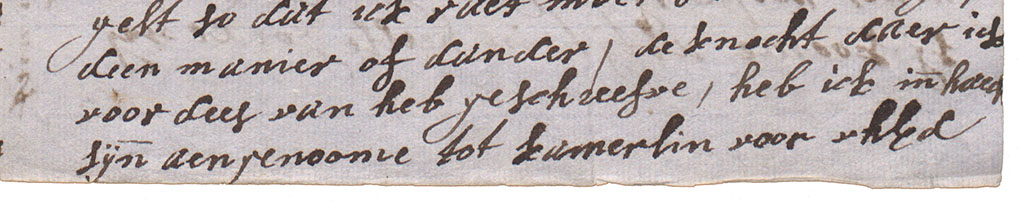 gelt so dat ick raet
deen manier of dander / de knecht daer ick
voor dees van heb geschreefve / heb ick in haer
sijn aengenoome tot kamerlin voor